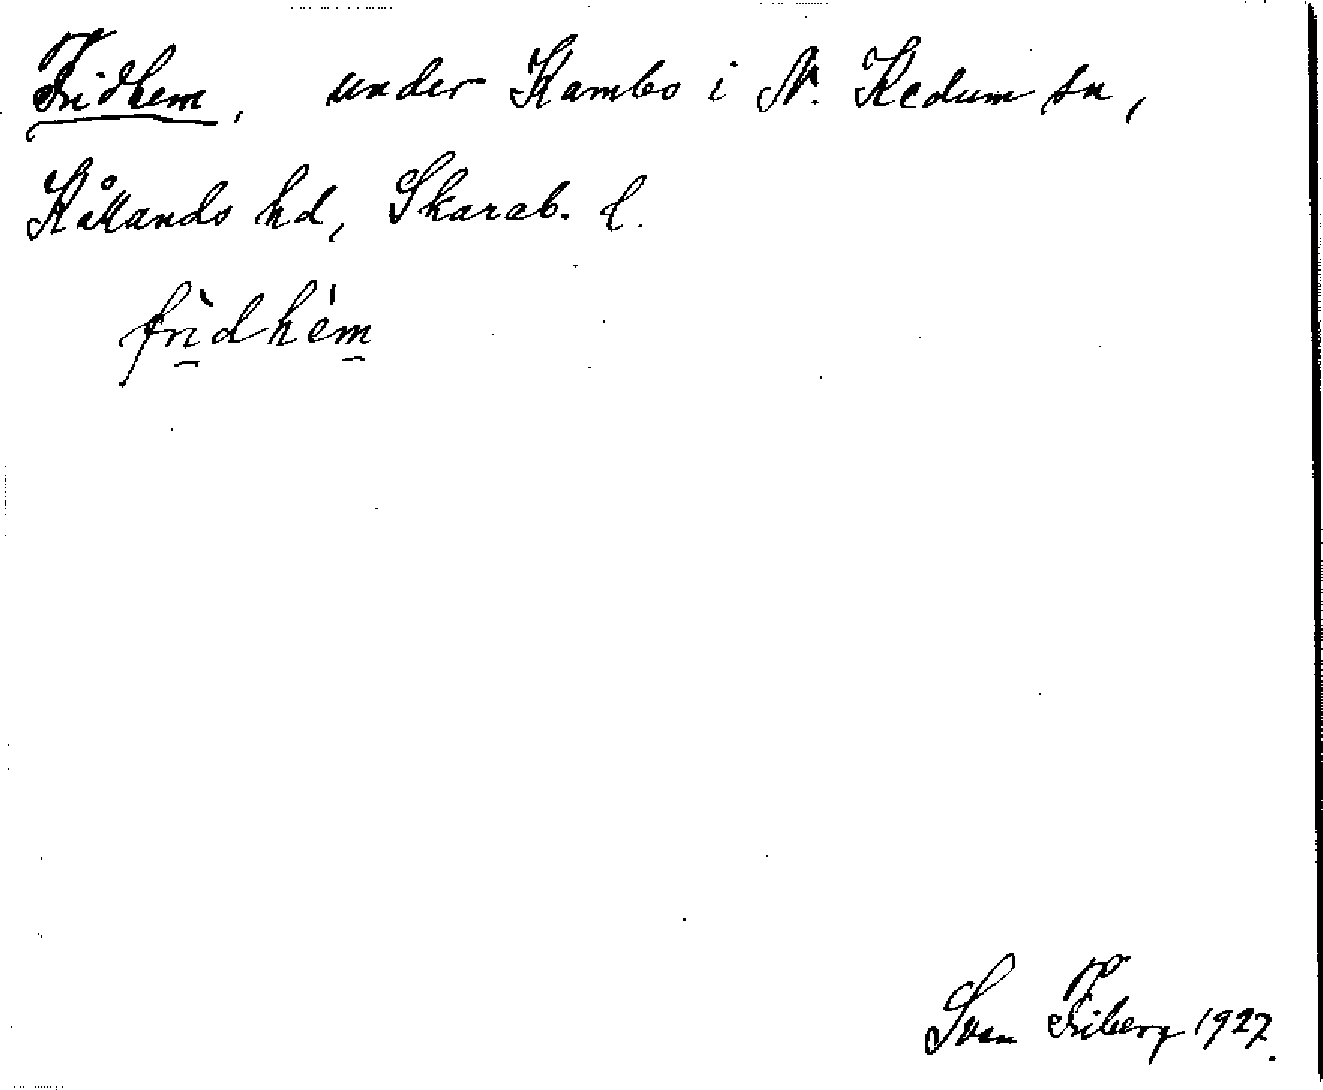 Fridhem, under Kambo i N. Kedum sn,
Kållands hd, Skarab. l.
frìdhém
Sven Friberg 1927.